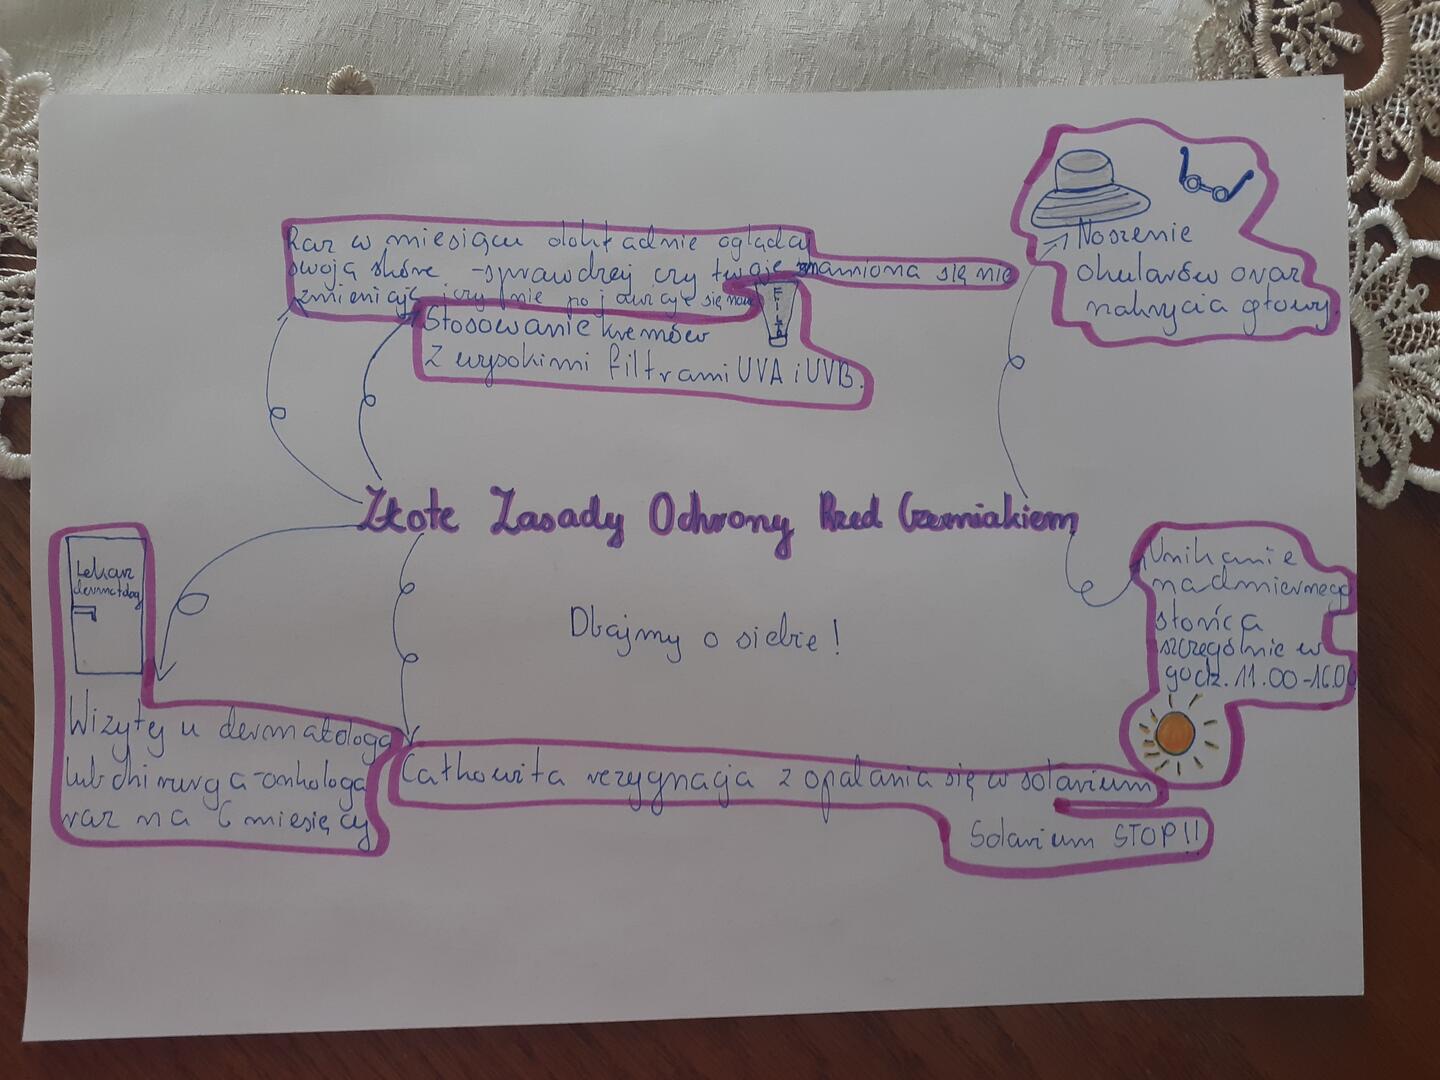 Raz w miesiącu dokładnie oglądaj
swoją skórę - sprawdzaj czy twoje znamiona się nie
zmieniają i czy nie pojawiają się nowe
FILTR
Stosowanie kremów
z wysokimi filtrami UVA i UVB.
Noszenie
okularów oraz
nakrycia głowy.
Złote Zasady Ochrony Przed Czerniakiem
Dbajmy o siebie!
Unikanie
nadmiernego
słońca
szczególnie w
godz. 11.00-16.00
Lekarz
dermatolog
Wizyty u dermatologa
lub chirurga-onkologa
raz na 6 miesięcy
Całkowita rezygnacja z opalania się w solarium
Solarium STOP!!